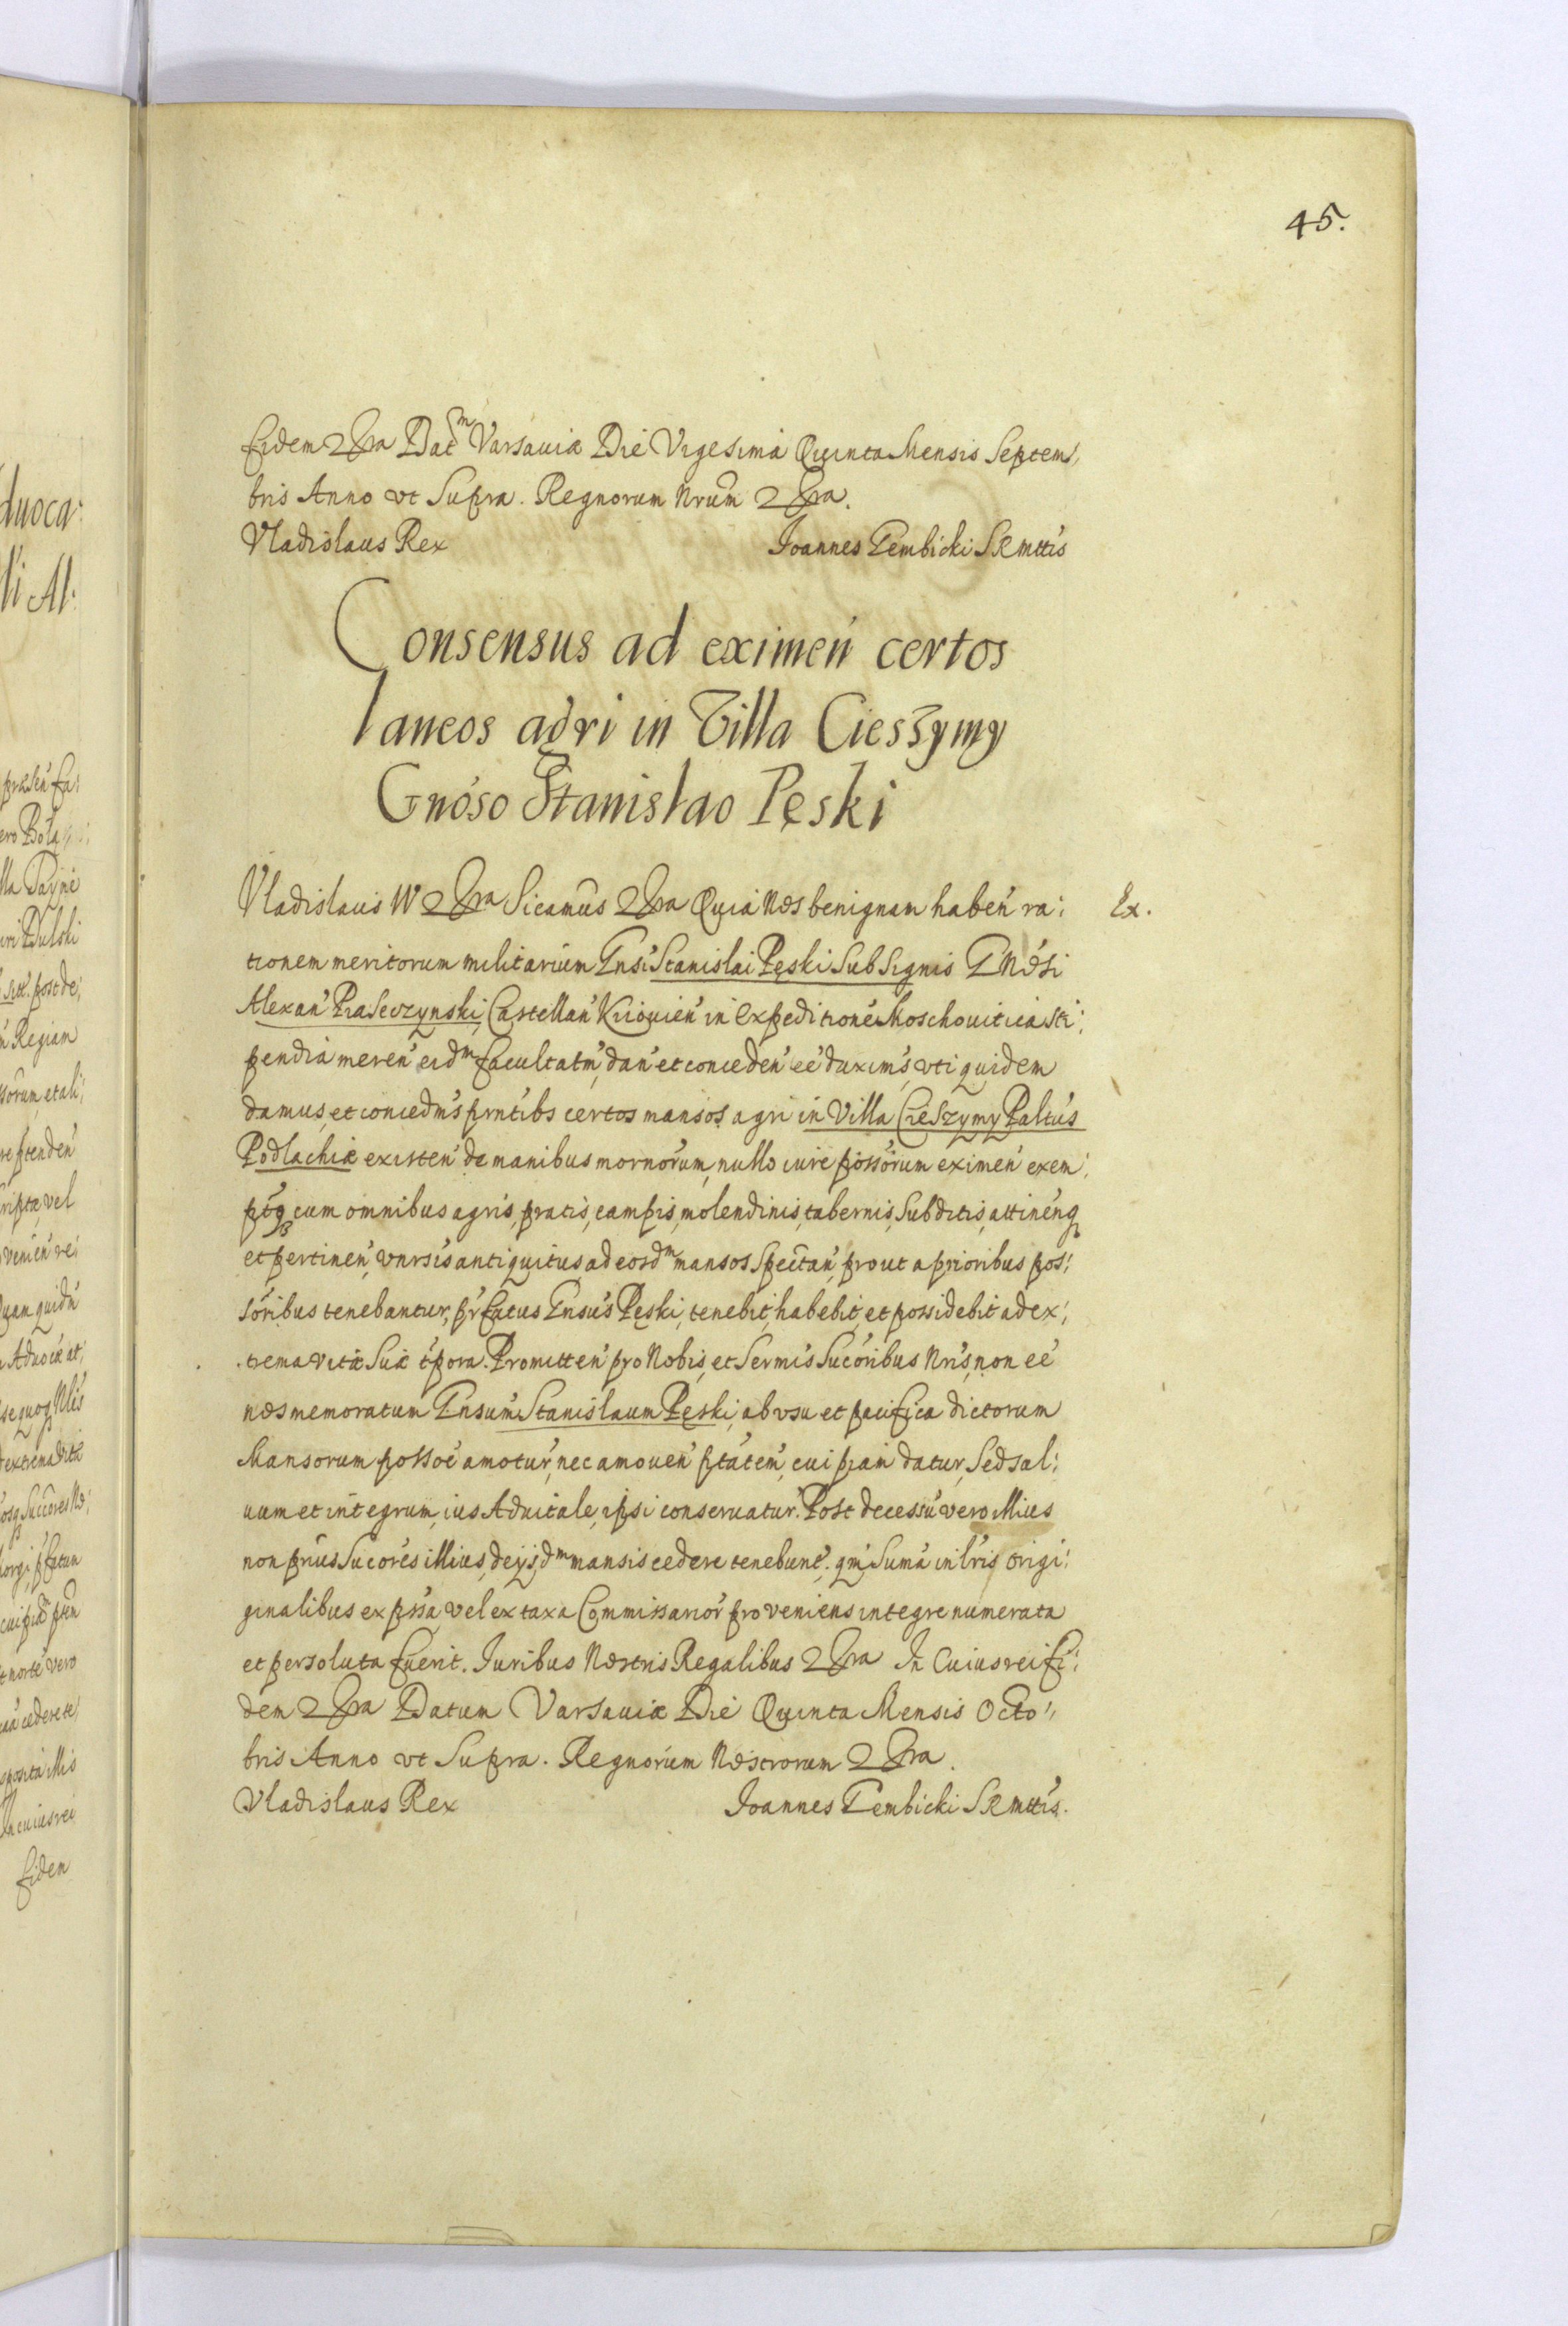 45.
fidem &ra Dat̃m Varsauiæ Die Vigesima Quinta Mensis Septem,
bris Anno vt Supra. Regnorum Nrum̃ &ra.
Vladislaus Rex Joannes Gembicki SRMttis
Consensus ad eximeń certos
laneos agri in Villa Cieszymy
Gnóso Stanislao Pęski
Vladislaus IV &ra Sicamũs &ra Quia Nos benignam habeń ra: Ex.
tionem meritorum militarium Gnsi Stanislai Pęski Sub Signis GMĉsi
Alexań Piaseczynski Castellań Kiiouień in Expeditioné Moschouitica sti:
pendia mereń eidm facultatḿ, dań et concedeń eé duxims, vti quidem
damus, et concedms prntibs certos mansos agri in Villa Cieszymy Paltus
Podlachiæ existeń de manibus mornorum, nullo iure possorum eximeń exem:
ptq cum omnibus agris, pratis, campis, molendinis, tabernis, Subditis, attinenq
et pertineń, vnrsis antiquitus ad eosdm mansos Spectań, prout a prioribus pos:
soribus tenebantur, prfatus Gnsus Pęski, tenebit, habebit, et possidebit ad ex:
trema vitæ Suæ tpora. Promitteń pro Nobis, et Sermis Sucoribus Nris, non eé
nos memoratum Gnsum Stanislaum Pęski, ab vsu et pacifica dictorum
Mansorum possoé amotur, nec amoueń ptatem, cuipiam datur, Sed sal:
uum et integrum, ius Aduitale, ipsi conseruatur. Post decessu vero illius
non prius Sucores illius, de ijsdm mansis cedere tenebunt. qm Suma in lris origi:
ginalibus expssa vel ex taxa Commissarior proveniens integre numerata
et persoluta fuerit. Juribus Nostris Regalibus &ra In Cuius rei fi:
dem &ra Datum Varsauiæ Die Quinta Mensis Octo,,
bris Anno vt Supra. Regnorum Nostrorum &ra.
Vladislaus Rex Joannes Gembicki SRMttis.